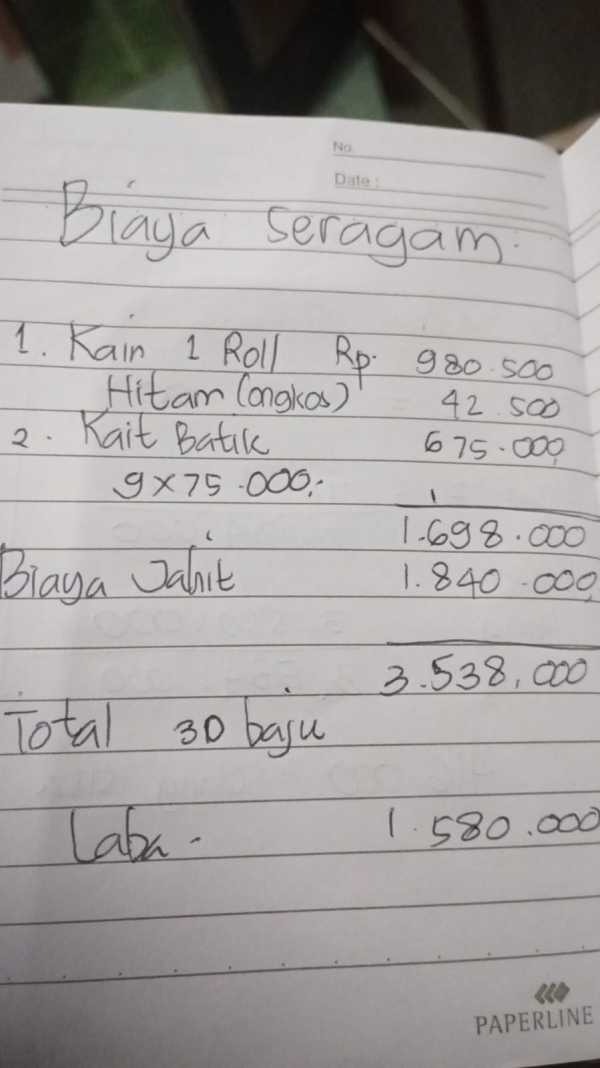 No.
Date :
Biaya seragam.
1. Kain 1 Roll Rp. 980.500
Hitam (ongkos) 42.500
2. Kait Batik 675.000,
9 x 75.000,-
1.698.000
Biaya Jahit 1.840.000,
3.538.000
Total 30 baju
Laba - 1.580.000
PAPERLINE